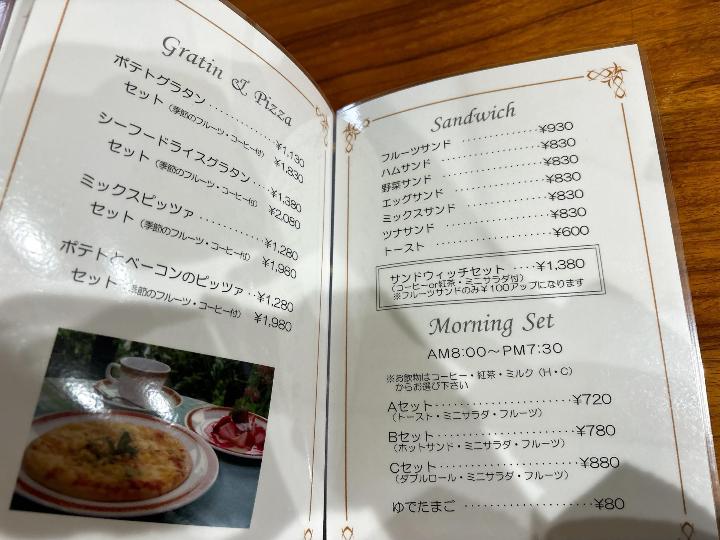 Gratin & Pizza
ポテトグラタン ............ ¥1,130
セット (季節のフルーツ・コーヒー付) ¥1,830
シーフードライスグラタン .... ¥1,380
セット (季節のフルーツ・コーヒー付) ¥2,080
ミックスピッツァ ............ ¥1,280
セット (季節のフルーツ・コーヒー付) ¥1,980
ポテトとベーコンのピッツァ .. ¥1,280
セット (季節のフルーツ・コーヒー付) ¥1,980
Sandwich
フルーツサンド ............ ¥930
ハムサンド ............ ¥830
野菜サンド ............ ¥830
エッグサンド ............ ¥830
ミックスサンド ............ ¥830
ツナサンド ............ ¥830
トースト ............ ¥600
サンドウィッチセット .... ¥1,380
(コーヒーor紅茶・ミニサラダ付)
※フルーツサンドのみ¥100アップになります
Morning Set
AM8:00～PM7:30
※お飲物はコーヒー・紅茶・ミルク（H・C）
からお選び下さい
Aセット ............ ¥720
(トースト・ミニサラダ・フルーツ)
Bセット ............ ¥780
(ホットサンド・ミニサラダ・フルーツ)
Cセット ............ ¥880
(ダブルロール・ミニサラダ・フルーツ)
ゆでたまご ............ ¥80